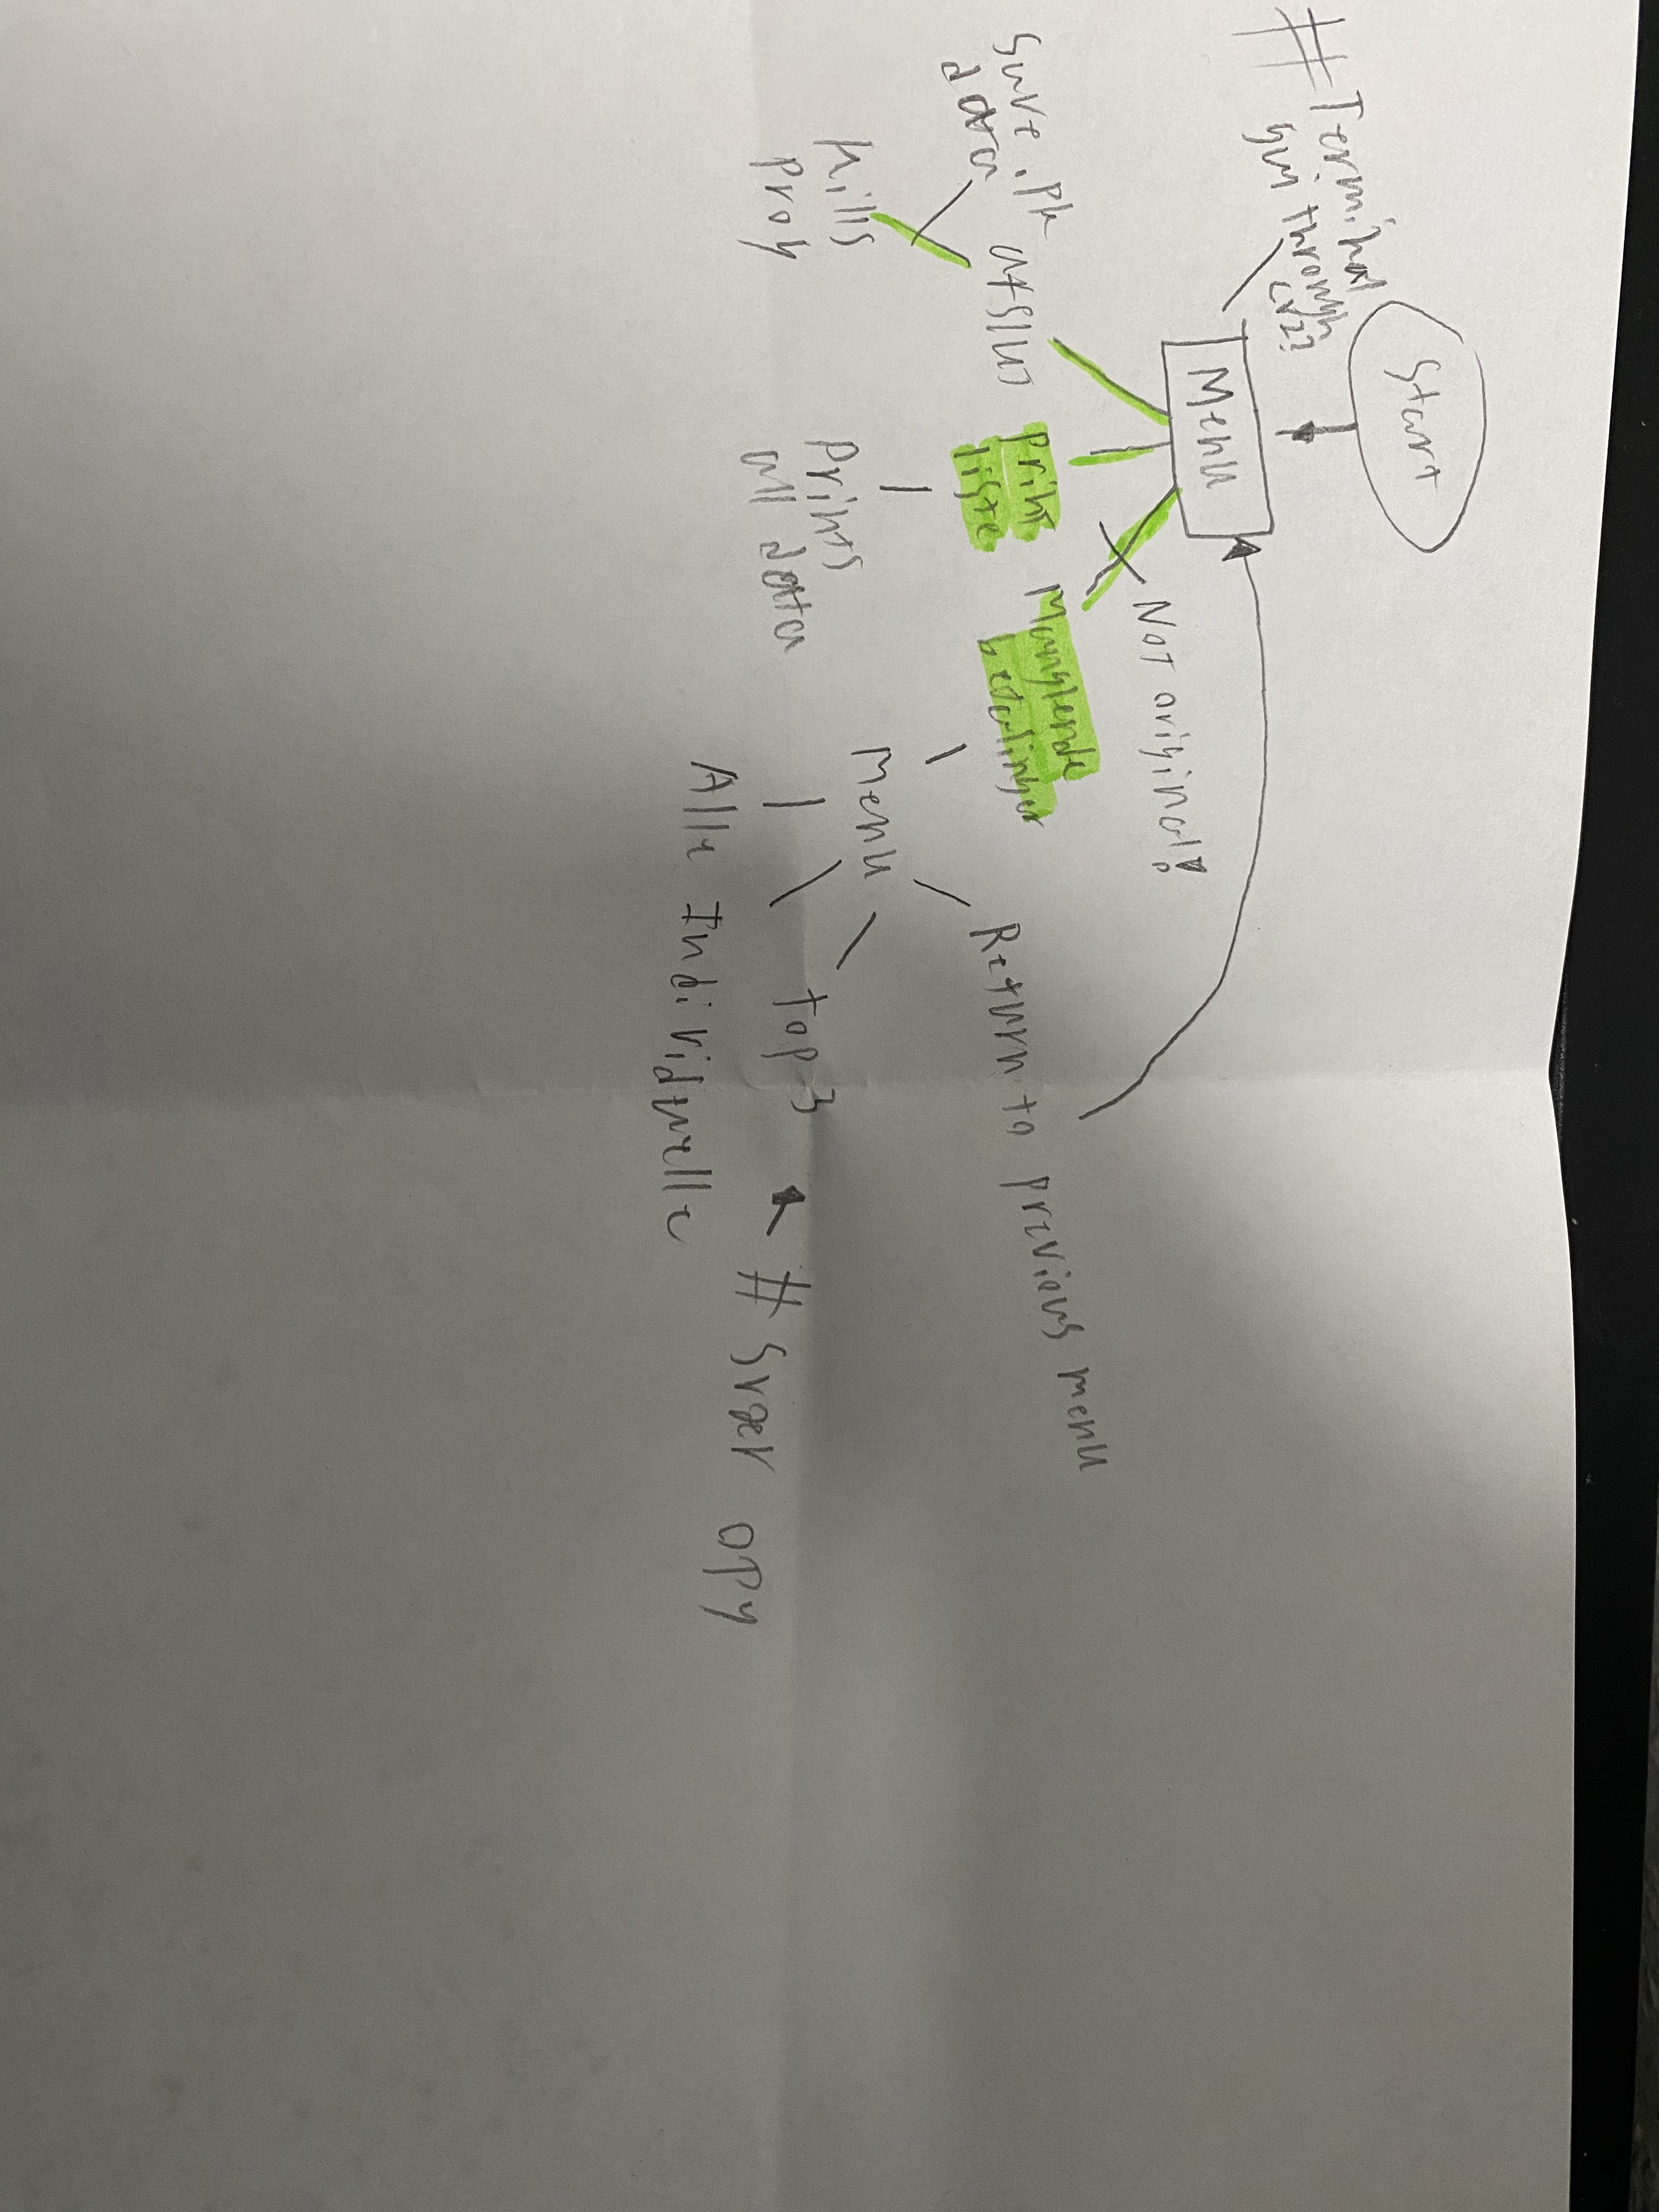 Start
# Terminal
gui through
cv2?
Menu
Not original!
Save .pk
data
afslut
Print
liste
Manglende
betalinger
Return to previous menu
Kills
Prog
Prints
all data
Menu
top 3
#
opg
Alle Individuelle